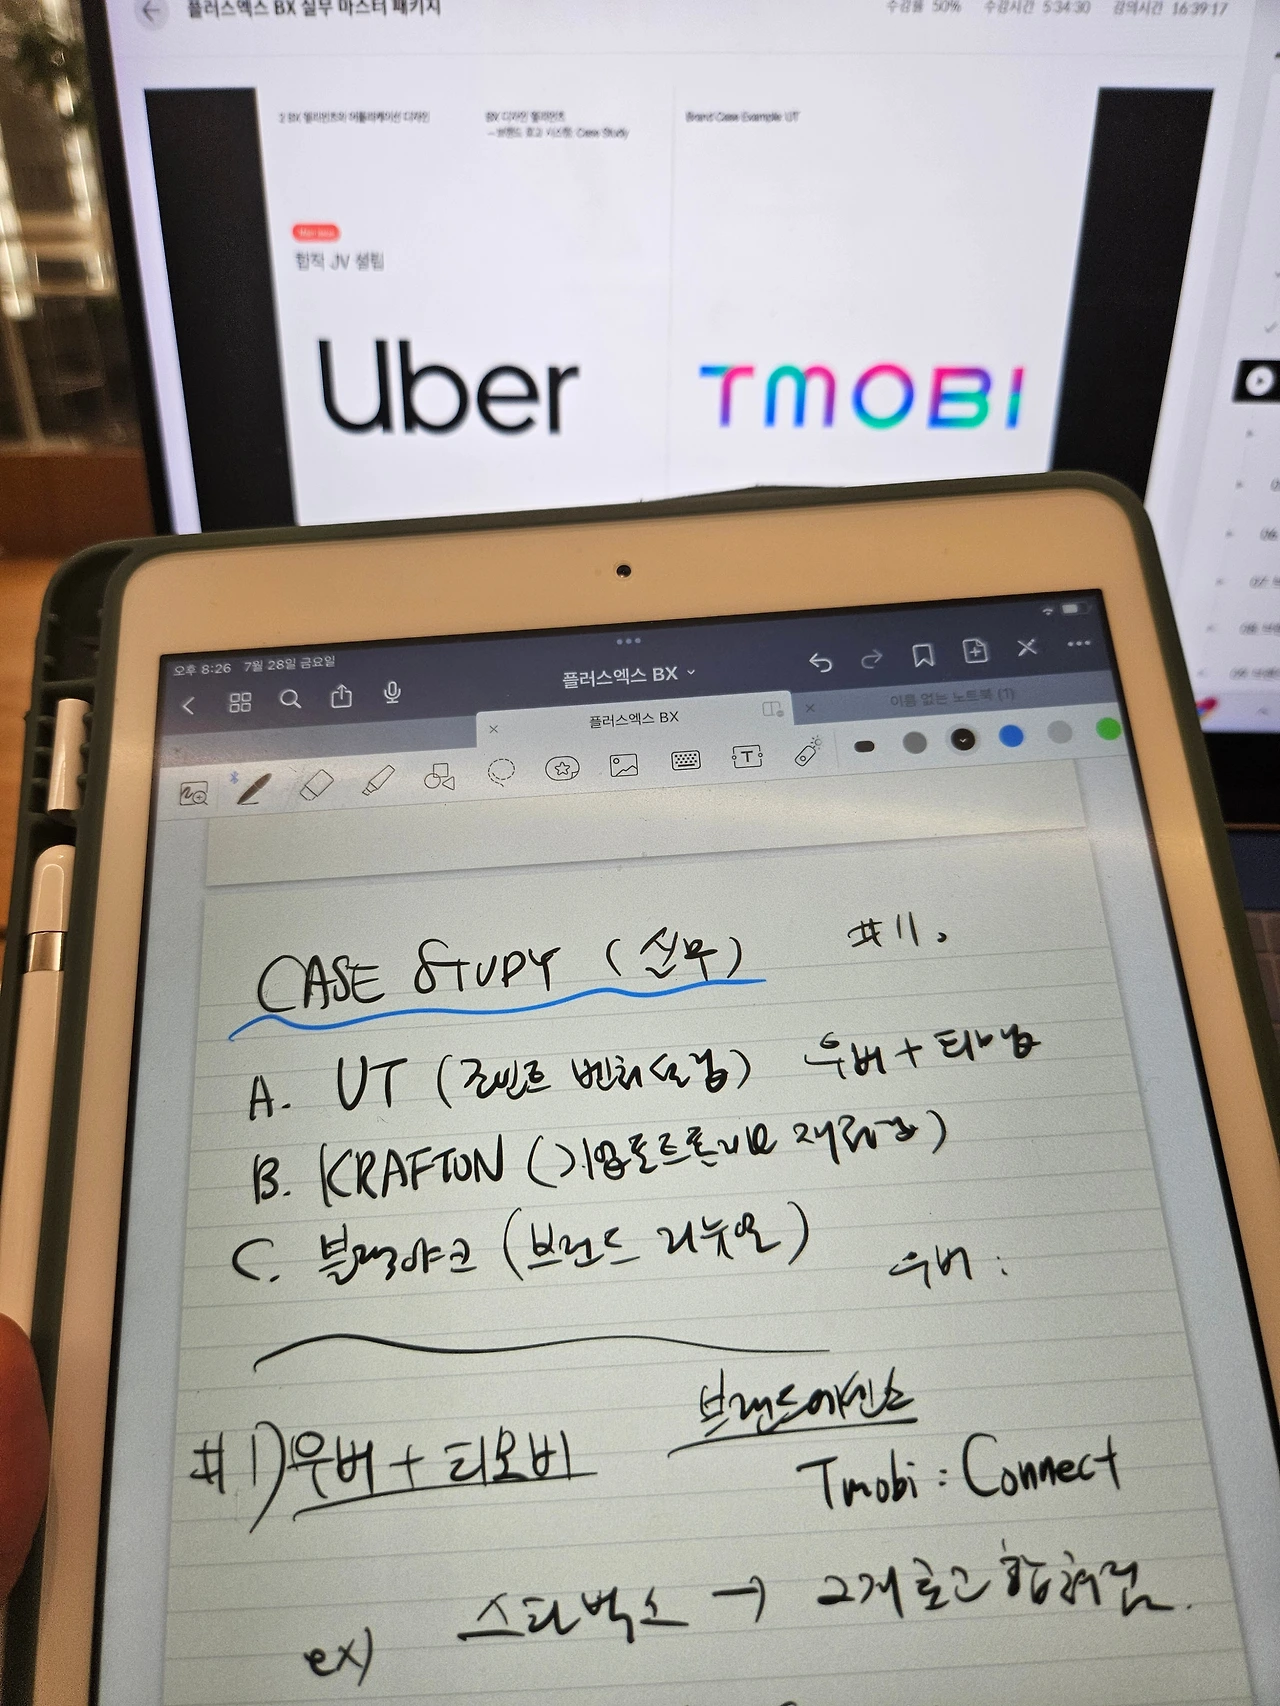 플러스엑스 BX 실무 마스터 패키지
수강률 50% 수강시간 5:34:30 강의시간 16:39:17
2 BX 엘리먼트와 어플리케이션 디자인
BX 디자인 엘리먼트
– 브랜드 로고 시스템: Case Study
Brand Case Example UT
합작 JV 설립
Uber
TMOBI
오후 8:26 7월 28일 금요일
플러스엑스 BX
플러스엑스 BX
이름 없는 노트북 (1)
CASE STUDY (실무) #11.
A. UT (조인트 벤처설립) 우버 +
B. KRAFTON (기업포트폴리오
C. 블랙야크 (브랜드 리뉴얼)
우버 :
#1) 우버 + 티모비
브랜드에센스
Tmobi : Connect
ex) 스타벅스 → 2개 로고 합쳐짐.